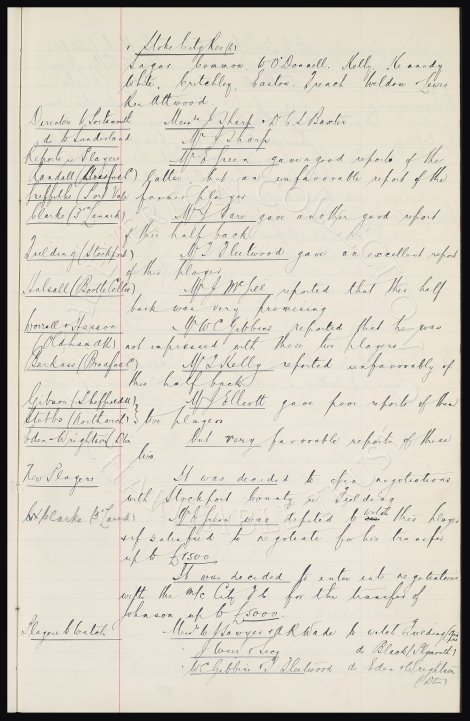 v Stoke City Res (A)
Sagar Connor & O'Donnell. Kelly, Kennedy
White, Critchley, Easton, French Weldon & Lewis
Res Attwood
Directors to Portsmouth Messrs J Sharp & D C S Baxter
do to Sunderland Mr J Sharp
Reports re Players Mr E Green gave a good reports of the
Randall (Bradford C) latter but an unfavourable report of the
Griffiths (Port Vale) former player
Clarke (3rd Lanark) Mr gave another good report
of this half back
Fielding (Stockport) Mr T Fleetwood gave an excellent report
of this player
Halsall (Bootle Celtic) Mr J McGee reported that this half
back was very promising
Worrall & Hasson Mr W C Gibbins reported that he was
(Oldham Ath) not impressed with these two players
Barkass (Bradford C) Mr J Kelly reported unfavourably of
this half back
Gibson (Sheffield U) Mr J Elliott gave poor reports of these
Stubbs (Northwich) } two players
Eden & Wrightson (Dton) but very favorable reports of these
two
New Players It was decided to open negotiations
with Stockport County re Fielding
Clarke (3rd Lanark) Mr E Green was deputed to watch this player
& if satisfied to negotiate for his transfer
up to £1500
It was decided to enter into negotiations
with the M/c City F C for the transfer of
Johnson up to £5000.
Players to Watch Messrs W J Sawyer & A R Wade to watch Fielding
J Weir & Secy do Black (Plymouth)
W C Gibbins & T Fleetwood do Eden & Wrightson
(Dton)